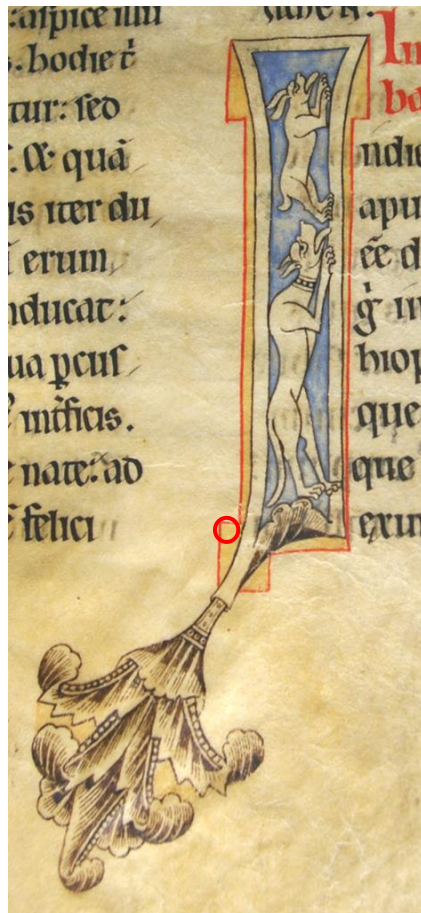 aspice illū
. hodie t̄
tur: sed
. Et quā
us iter du
erum
nducat:
ua ꝑcus
intficis.
nate: ad
felici
In
ba
ndie
apu
ēē d
g in
hiop
que
que
exiu